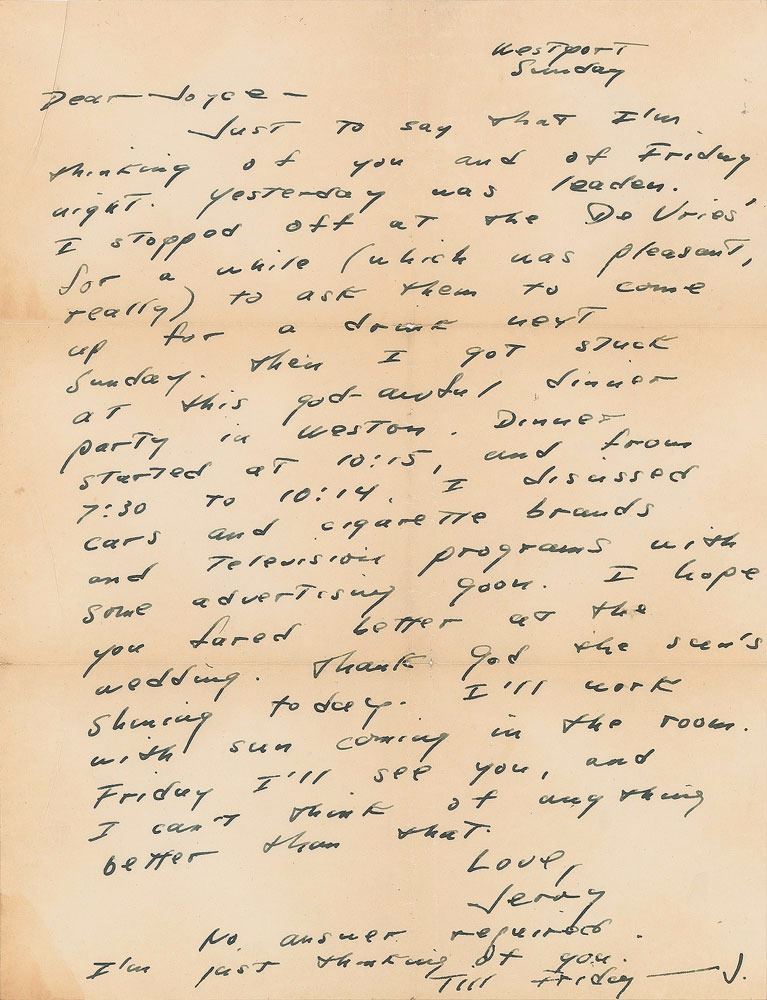 Westport
Sunday
Dear Joyce —
Just to say that I'm
thinking of you and of Friday
night. Yesterday was leaden.
I stopped off at the De Vries'
for a while (which was pleasant,
really) to ask them to come
up for a drink next
Sunday. Then I got stuck
at this god-awful dinner
party in Weston. Dinner
started at 10:15, and from
7:30 to 10:14. I discussed
cars and cigarette brands
and television programs with
some advertising goon. I hope
you fared better at the
wedding. Thank God the sun's
shining today. I'll work
with sun coming in the room.
Friday I'll see you, and
I can't think of anything
better than that.
Love,
Jerry
No answer required.
I'm just thinking of you.
Till Friday — J.